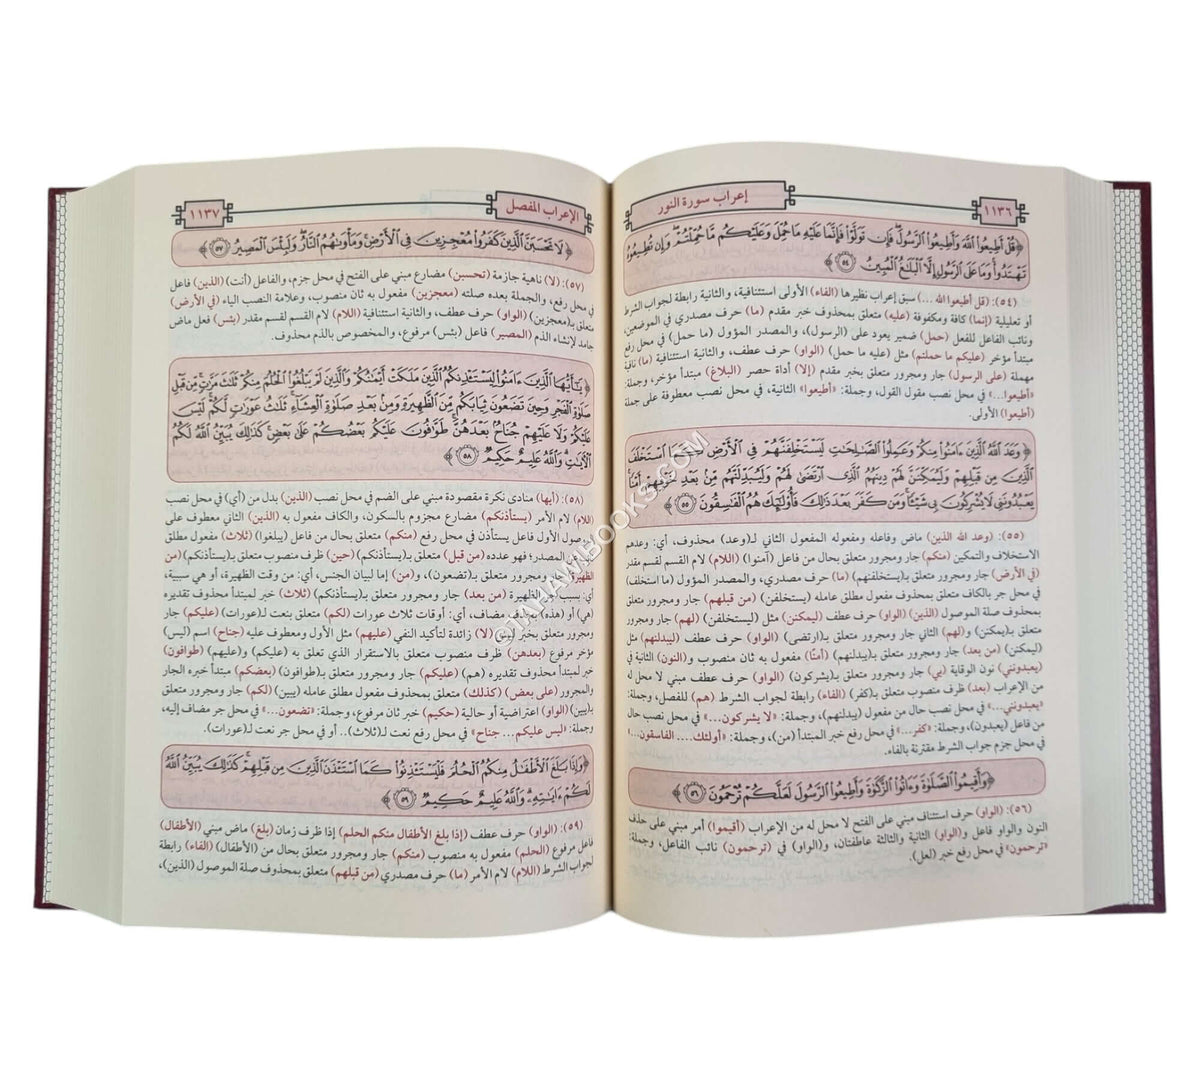 ١١٣٦
إعراب سورة النور
﴿قُلْ أَطِيعُوا۟ ٱللَّهَ وَأَطِيعُوا۟ ٱلرَّسُولَ ۖ فَإِن تَوَلَّوْا۟ فَإِنَّمَا عَلَيْهِ مَا حُمِّلَ وَعَلَيْكُم مَّا حُمِّلْتُمْ ۖ وَإِن تُطِيعُوهُ
تَهْتَدُوا۟ ۚ وَمَا عَلَى ٱلرَّسُولِ إِلَّا ٱلْبَلَٰغُ ٱلْمُبِينُ ٥٤﴾
(٥٤): (قل أطيعوا الله ...) سبق إعراب نظيرها (الفاء) الأولى استئنافية، والثانية رابطة لجواب الشرط
أو تعليلية (إنما) كافة ومكفوفة (عليه) متعلق بمحذوف خبر مقدم (ما) حرف مصدري في الموضعين،
ونائب الفاعل للفعل (حمل) ضمير يعود على (الرسول)، والمصدر المؤول (ما حمل) في محل رفع
مبتدأ مؤخر (عليكم ما حملتم) مثل (عليه ما حمل) (الواو) حرف عطف، والثانية استئنافية (ما) نافية
مهملة (على الرسول) جار ومجرور متعلق بخبر مقدم (إلا) أداة حصر (البلاغ) مبتدأ مؤخر، وجملة:
«أطيعوا...» في محل نصب مقول القول، وجملة: «أطيعوا» الثانية، في محل نصب معطوفة على جملة
(أطيعوا) الأولى.
﴿وَعَدَ ٱللَّهُ ٱلَّذِينَ ءَامَنُوا۟ مِنكُمْ وَعَمِلُوا۟ ٱلصَّٰلِحَٰتِ لَيَسْتَخْلِفَنَّهُمْ فِى ٱلْأَرْضِ كَمَا ٱسْتَخْلَفَ
ٱلَّذِينَ مِن قَبْلِهِمْ وَلَيُمَكِّنَنَّ لَهُمْ دِينَهُمُ ٱلَّذِى ٱرْتَضَىٰ لَهُمْ وَلَيُبَدِّلَنَّهُم مِّنۢ بَعْدِ خَوْفِهِمْ أَمْنًا ۚ
يَعْبُدُونَنِى لَا يُشْرِكُونَ بِى شَيْـًٔا ۚ وَمَن كَفَرَ بَعْدَ ذَٰلِكَ فَأُو۟لَٰٓئِكَ هُمُ ٱلْفَٰسِقُونَ ٥٥﴾
(٥٥): (وعد الله الذين) ماض وفاعله ومفعوله المفعول الثاني لـ(وعد) محذوف، أي: وعدهم
الاستخلاف والتمكين (منكم) جار ومجرور متعلق بحال من فاعل (آمنوا) (اللام) لام القسم لقسم مقدر
(في الأرض) جار ومجرور متعلق بـ(يستخلفنهم) (ما) حرف مصدري، والمصدر المؤول (ما استخلف)
في محل جر بالكاف متعلق بمحذوف مفعول مطلق عامله (يستخلفن) (من قبلهم) جار ومجرور متعلق
بمحذوف صلة الموصول (الذين) (الواو) حرف عطف (ليمكنن) مثل (ليستخلفن) (لهم) جار ومجرور
متعلق بـ(يمكنن) و(لهم) الثاني جار ومجرور متعلق بـ(ارتضى) (الواو) حرف عطف (ليبدلنهم) مثل
(ليمكنن) (من بعد) جار ومجرور متعلق بـ(يبدلنهم) (أمنًا) مفعول به ثان منصوب و(النون) الثانية في
(يعبدونني) نون الوقاية (بي) جار ومجرور متعلق بـ(يشركون) (الواو) حرف عطف مبني لا محل له
من الإعراب (بعد) ظرف منصوب متعلق بـ(كفر) (الفاء) رابطة لجواب الشرط (هم) للفصل، وجملة:
«يعبدونني...» في محل نصب حال من مفعول (يبدلنهم)، وجملة: «لا يشركون...» في محل نصب حال
من فاعل (يعبدون)، وجملة: «كفر...» في محل رفع خبر المبتدأ (من)، وجملة: «أولئك.... الفاسقون...»
في محل جزم جواب الشرط مقترنة بالفاء.
﴿وَأَقِيمُوا۟ ٱلصَّلَوٰةَ وَءَاتُوا۟ ٱلزَّكَوٰةَ وَأَطِيعُوا۟ ٱلرَّسُولَ لَعَلَّكُمْ تُرْحَمُونَ ٥٦﴾
(٥٦): (الواو) حرف استئناف مبني على الفتح لا محل له من الإعراب (أقيموا) أمر مبني على حذف
النون والواو فاعل و(الواو) الثانية والثالثة عاطفتان، و(الواو) في (ترحمون) نائب الفاعل، وجملة:
«ترحمون» في محل رفع خبر (لعل).
الإعراب المفصل
١١٣٧
﴿لَا تَحْسَبَنَّ ٱلَّذِينَ كَفَرُوا۟ مُعْجِزِينَ فِى ٱلْأَرْضِ ۚ وَمَأْوَىٰهُمُ ٱلنَّارُ ۖ وَلَبِئْسَ ٱلْمَصِيرُ ٥٧﴾
(٥٧): (لا) ناهية جازمة (تحسبن) مضارع مبني على الفتح في محل جزم، والفاعل (أنت) (الذين) فاعل
في محل رفع، والجملة بعده صلته (معجزين) مفعول به ثان منصوب، وعلامة النصب الياء (في الأرض)
متعلق بـ(معجزين) (الواو) حرف عطف، والثانية استئنافية (اللام) لام القسم لقسم مقدر (بئس) فعل ماض
جامد لإنشاء الذم (المصير) فاعل (بئس) مرفوع، والمخصوص بالذم محذوف.
﴿يَٰٓأَيُّهَا ٱلَّذِينَ ءَامَنُوا۟ لِيَسْتَـْٔذِنكُمُ ٱلَّذِينَ مَلَكَتْ أَيْمَٰنُكُمْ وَٱلَّذِينَ لَمْ يَبْلُغُوا۟ ٱلْحُلُمَ مِنكُمْ ثَلَٰثَ مَرَّٰتٍ ۚ مِّن قَبْلِ
صَلَوٰةِ ٱلْفَجْرِ وَحِينَ تَضَعُونَ ثِيَابَكُم مِّنَ ٱلظَّهِيرَةِ وَمِنۢ بَعْدِ صَلَوٰةِ ٱلْعِشَآءِ ۚ ثَلَٰثُ عَوْرَٰتٍ لَّكُمْ ۚ لَيْسَ
عَلَيْكُمْ وَلَا عَلَيْهِمْ جُنَاحٌۢ بَعْدَهُنَّ ۚ طَوَّٰفُونَ عَلَيْكُم بَعْضُكُمْ عَلَىٰ بَعْضٍ ۚ كَذَٰلِكَ يُبَيِّنُ ٱللَّهُ لَكُمُ
ٱلْءَايَٰتِ ۗ وَٱللَّهُ عَلِيمٌ حَكِيمٌ ٥٨﴾
(٥٨): (أيها) منادى نكرة مقصودة مبني على الضم في محل نصب (الذين) بدل من (أي) في محل نصب
(اللام) لام الأمر (يستأذنكم) مضارع مجزوم بالسكون، والكاف مفعول به (الذين) الثاني معطوف على
الموصول الأول فاعل يستأذن في محل رفع (منكم) متعلق بحال من فاعل (يبلغوا) (ثلاث) مفعول مطلق
المصدر؛ فهو عدده (من قبل) متعلق بـ(يستأذنكم) (حين) ظرف منصوب متعلق بـ(يستأذنكم) (من
الظهيرة) جار ومجرور متعلق بـ(تضعون)، و(من) إما لبيان الجنس، أي: من وقت الظهيرة، أو هي سببية،
أي: بسبب الظهيرة (من بعد) جار ومجرور متعلق بـ(يستأذنكم) (ثلاث) خبر لمبتدأ محذوف تقديره
(هي) أو (هذه) مضاف، أي: أوقات ثلاث عورات (لكم) متعلق بنعت لـ(عورات) (عليكم) جار
ومجرور متعلق بخبر ليس (لا) زائدة لتأكيد النفي (عليهم) مثل الأول ومعطوف عليه (جناح) اسم (ليس)
مؤخر مرفوع (بعدهن) ظرف منصوب متعلق بالاستقرار الذي تعلق به (عليكم) و(عليهم) (طوافون)
خبر لمبتدأ محذوف تقديره (هم) (عليكم) جار ومجرور متعلق بـ(طوافون) (بعضكم) مبتدأ خبره الجار
والمجرور (على بعض) (كذلك) متعلق بمحذوف مفعول مطلق عامله (يبين) (لكم) جار ومجرور متعلق
بـ(يبين) (الواو) اعتراضية أو حالية (حكيم) خبر ثان مرفوع، وجملة: «تضعون...» في محل جر مضاف إليه،
وجملة: «ليس عليكم... جناح» في محل رفع نعت لـ(ثلاث).. أو في محل جر نعت لـ(عورات).
﴿وَإِذَا بَلَغَ ٱلْأَطْفَٰلُ مِنكُمُ ٱلْحُلُمَ فَلْيَسْتَـْٔذِنُوا۟ كَمَا ٱسْتَـْٔذَنَ ٱلَّذِينَ مِن قَبْلِهِمْ ۚ كَذَٰلِكَ يُبَيِّنُ ٱللَّهُ
لَكُمْ ءَايَٰتِهِۦ ۗ وَٱللَّهُ عَلِيمٌ حَكِيمٌ ٥٩﴾
(٥٩): (الواو) حرف عطف (إذا بلغ الأطفال منكم الحلم) إذا ظرف زمان (بلغ) ماض مبني (الأطفال)
فاعل مرفوع (الحلم) مفعول به منصوب (منكم) جار ومجرور متعلق بحال من (الأطفال) (الفاء) رابطة
لجواب الشرط (اللام) لام الأمر (ما) حرف مصدري (من قبلهم) متعلق بمحذوف صلة الموصول (الذين)،
©TAHAMIBOOKS.COM